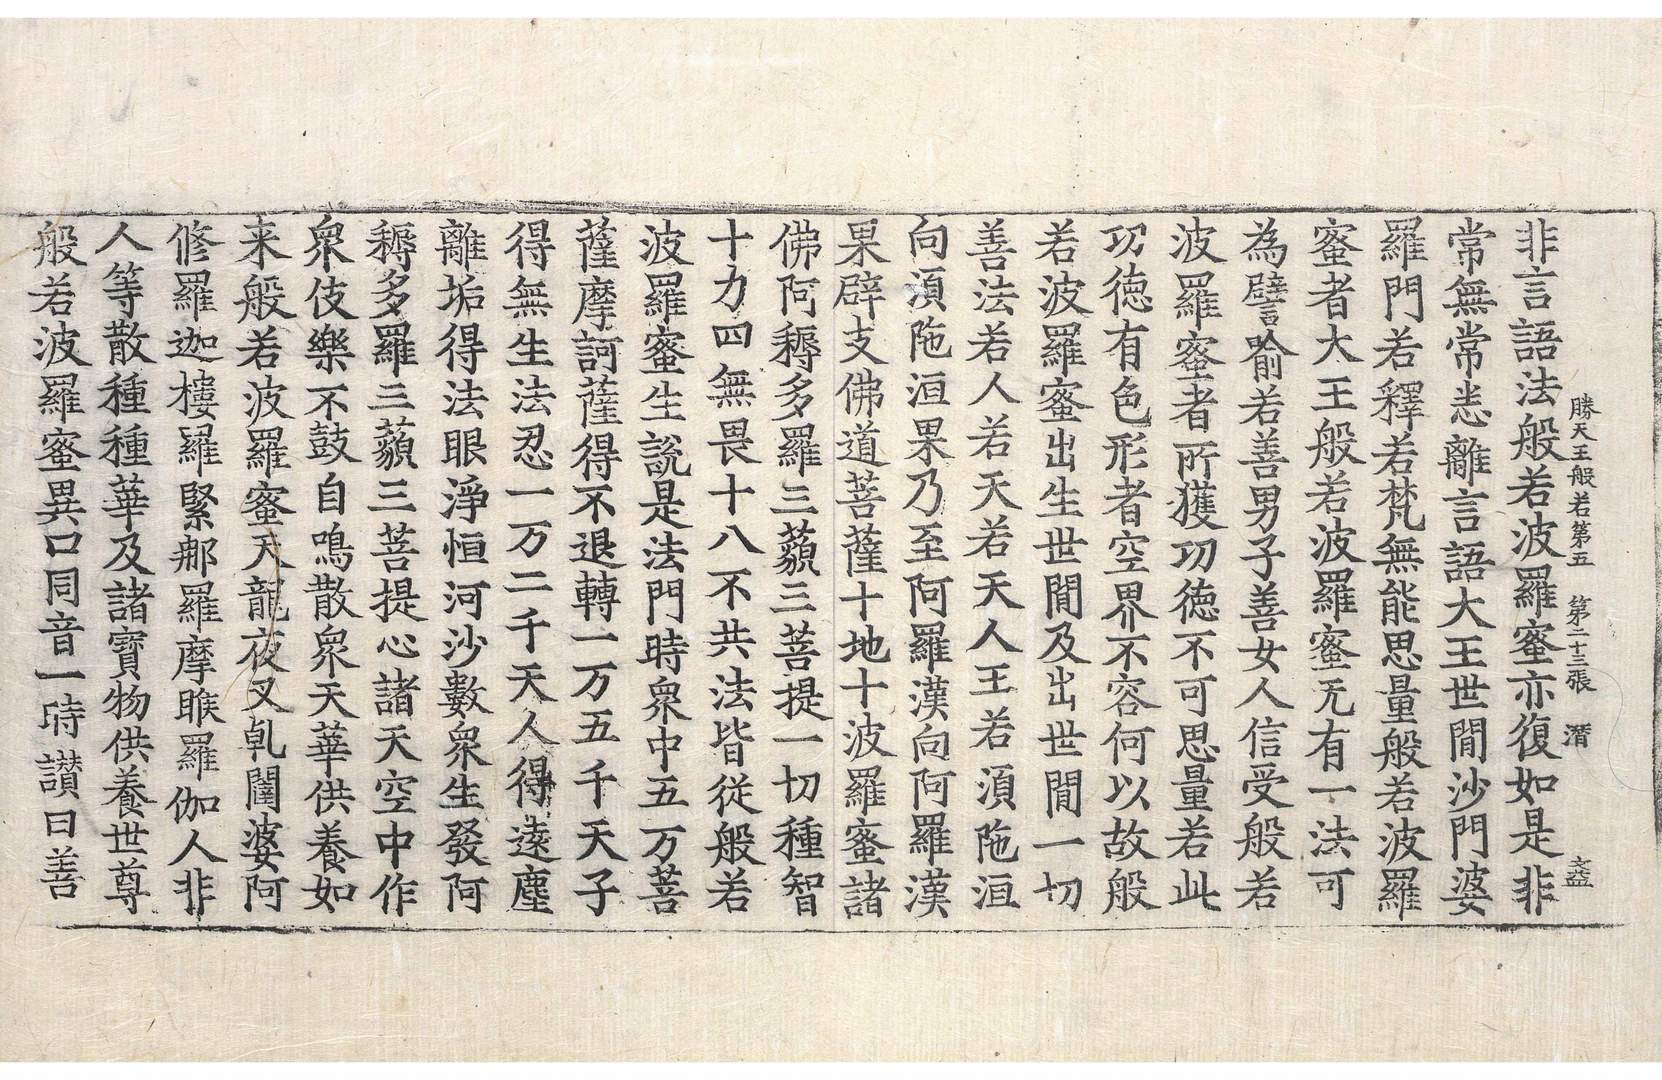 勝天王般若第五　第二十三張　潛　
非言語法般若波羅蜜亦復如是非
常無常悉離言語大王世間沙門婆
羅門若釋若梵無能思量般若波羅
蜜者大王般若波羅蜜无有一法可
為譬喻若善男子善女人信受般若
波羅蜜者所獲功德不可思量若此
功德有色形者空界不容何以故般
若波羅蜜出生世間及出世間一切
善法若人若天若天人王若湏陁洹
向湏陁洹果乃至阿羅漢向阿羅漢
果辟支佛道菩薩十地十波羅蜜諸
佛阿耨多羅三藐三菩提一切種智
十力四無畏十八不共法皆從般若
波羅蜜生說是法門時衆中五万菩
薩摩訶薩得不退轉一万五千天子
得無生法忍一万二千天人得遠塵
離垢得法眼淨恒河沙數衆生發阿
耨多羅三藐三菩提心諸天空中作
衆伎樂不鼓自鳴散衆天華供養如
来般若波羅蜜天龍夜叉乹闥婆阿
修羅迦樓羅緊那羅摩睺羅伽人非
人等散種種華及諸寶物供養世尊
般若波羅蜜異口同音一時讃曰善